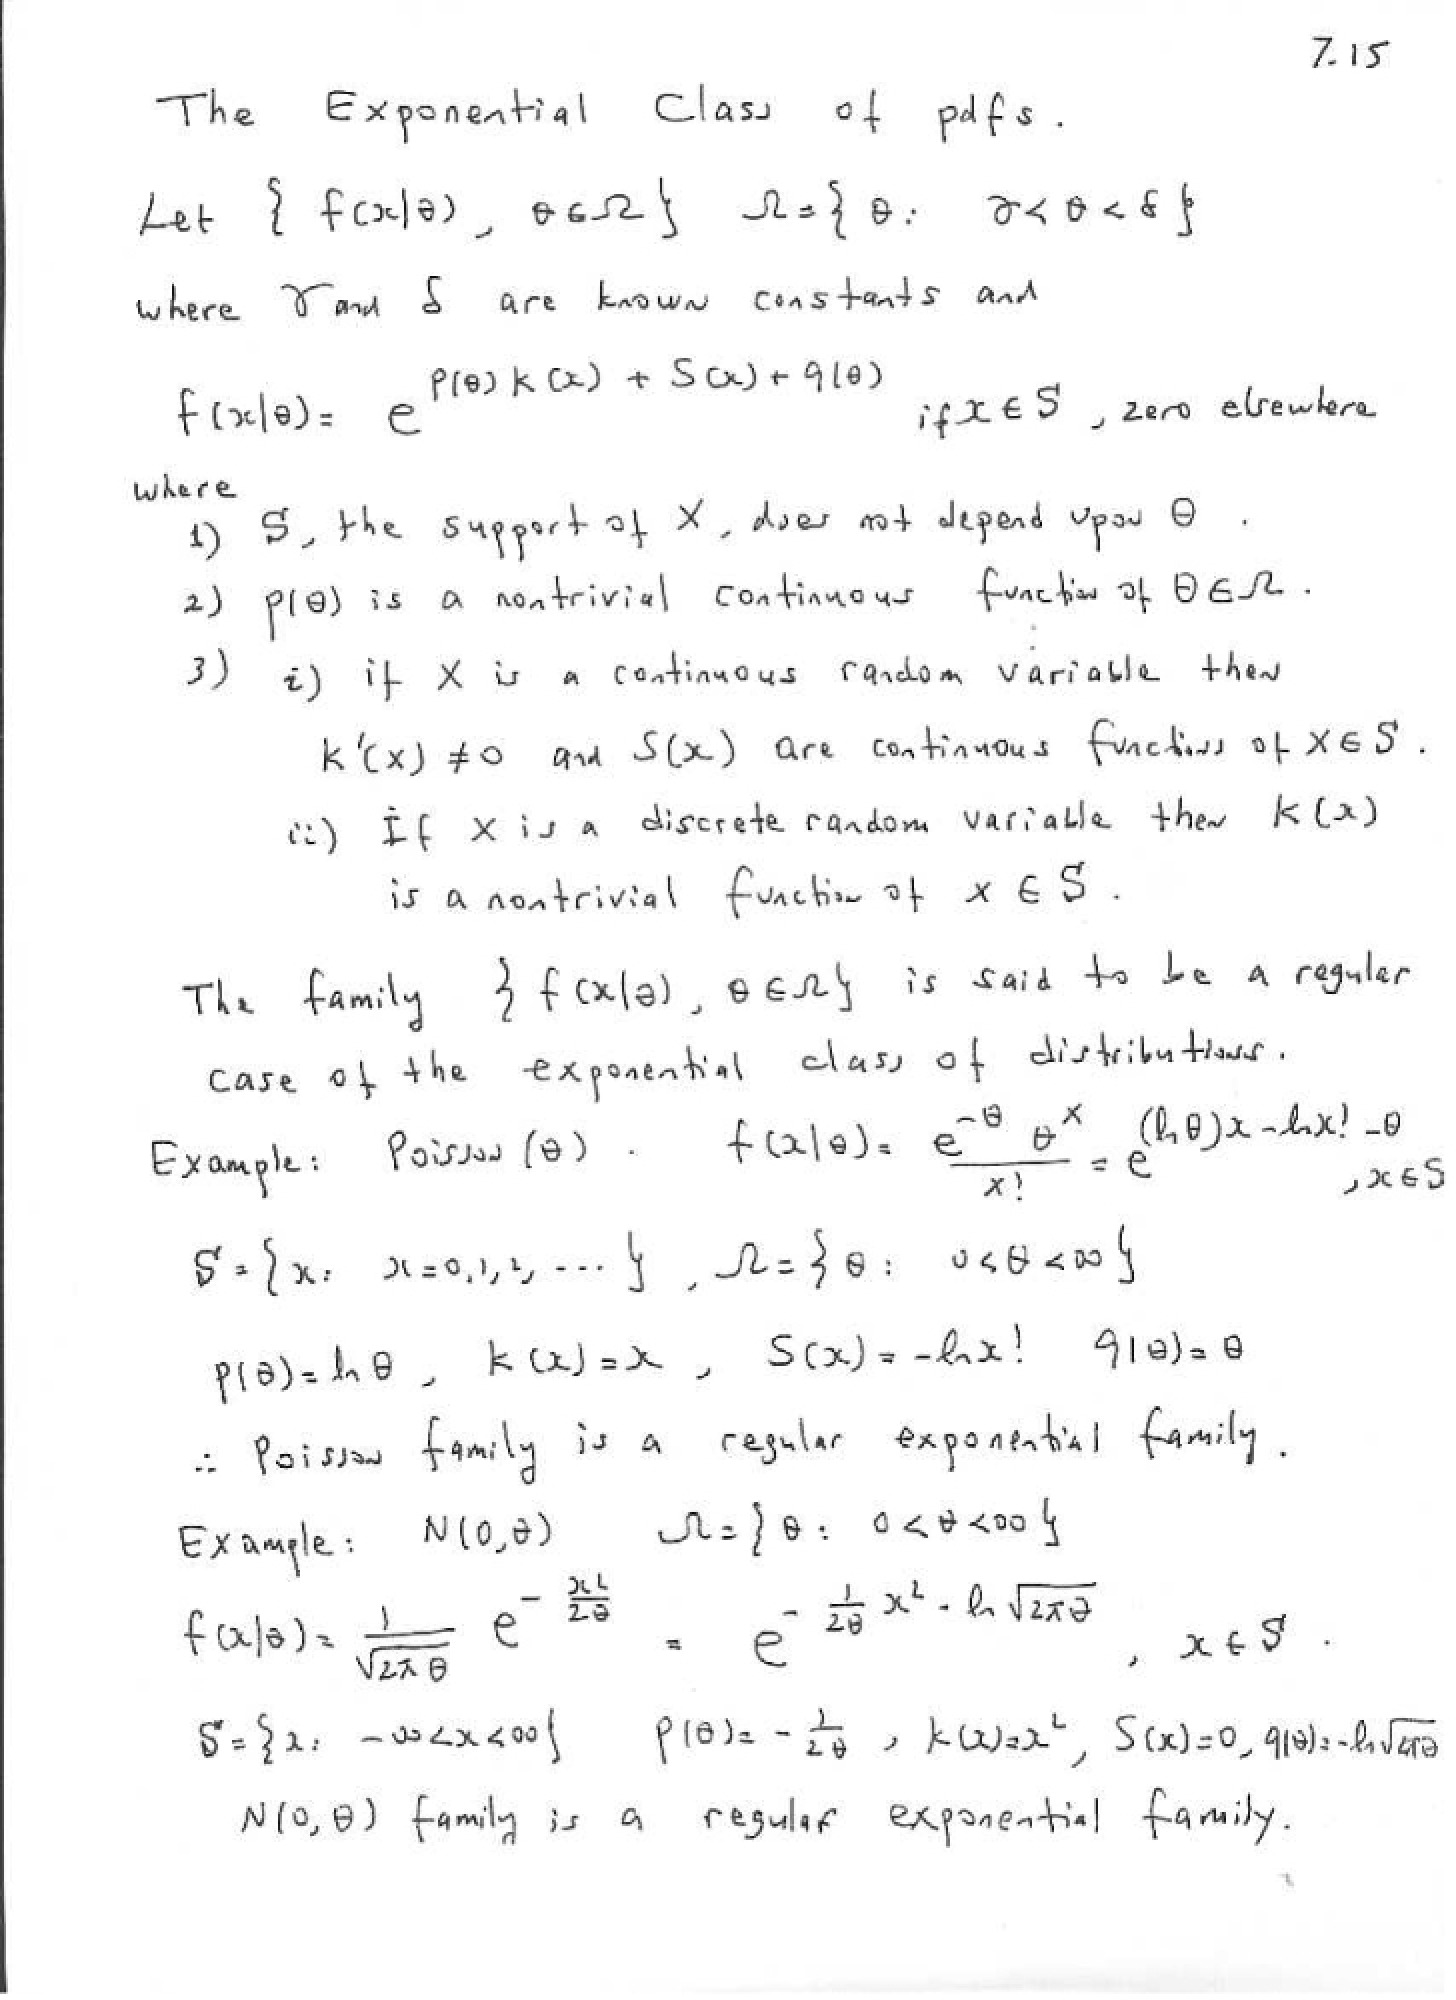 7.15
The Exponential Class of pdfs.
Let { f(x|θ), θ∈Ω} Ω={ θ: γ<θ<δ}
where γ and δ are known constants and
f(x|θ)= e^{p(θ)K(x) + S(x)+q(θ)} if x∈S, zero elsewhere
where
1) S, the support of X, does not depend upon θ.
2) p(θ) is a nontrivial continuous function of θ∈Ω.
3) i) if X is a continuous random variable then
K'(x)≠0 and S(x) are continuous functions of x∈S.
ii) If X is a discrete random variable then K(x)
is a nontrivial function of x∈S.
The family {f(x|θ), θ∈Ω} is said to be a regular
case of the exponential class of distributions.
Example: Poisson(θ). f(x|θ)= \frac{e^{-θ} θ^x}{x!} = e^{(ln θ)x-ln x!-θ}, x∈S
S={x: x=0,1,2,...}, Ω={θ: 0<θ<∞}
p(θ)=ln θ, K(x)=x, S(x)=-ln x! q(θ)=θ
∴ Poisson family is a regular exponential family.
Example: N(0,θ) Ω={θ: 0<θ<∞}
f(x|θ)= \frac{1}{\sqrt{2πθ}} e^{-\frac{x^2}{2θ}} = e^{-\frac{1}{2θ}x^2-ln\sqrt{2πθ}}, x∈S.
S={x: -∞<x<∞} p(θ)=-\frac{1}{2θ}, K(x)=x^2, S(x)=0, q(θ)=-ln\sqrt{2πθ}
N(0,θ) family is a regular exponential family.